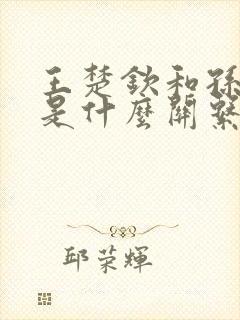 王楚欽和孫
是什麼關繫
邱荣輝